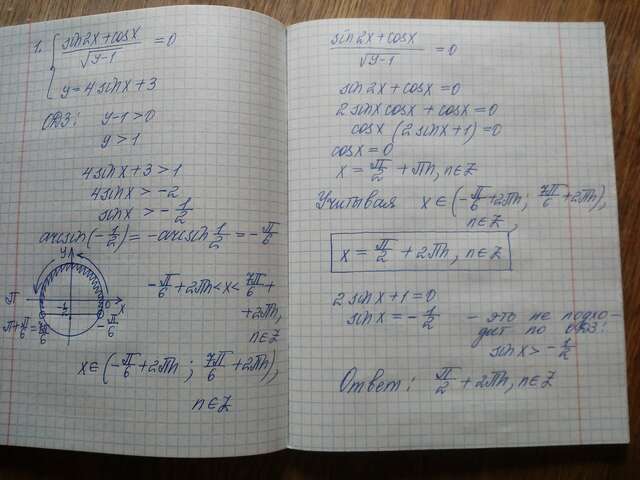 1. { (sin2x+cosx)/√(y-1) =0
y=4sinx+3
ОДЗ: y-1>0
y>1
4sinx+3>1
4sinx>-2
sinx>-1/2
arcsin(-1/2)=-arcsin 1/2=-π/6
y
π
-1/2
0
x
π+π/6=7π/6
-π/6
-π/6+2πn<x<7π/6+
+2πn,
n∈Z
x∈(-π/6+2πn; 7π/6+2πn),
n∈Z
(sin2x+cosx)/√(y-1) =0
sin2x+cosx=0
2sinxcosx+cosx=0
cosx(2sinx+1)=0
cosx=0
x=π/2+πn, n∈Z
Учитывая x∈(-π/6+2πn; 7π/6+2πn),
n∈Z,
x=π/2+2πn, n∈Z
2sinx+1=0
sinx=-1/2 - это не подхо-
дит по ОДЗ:
sinx>-1/2
Ответ: π/2+2πn, n∈Z